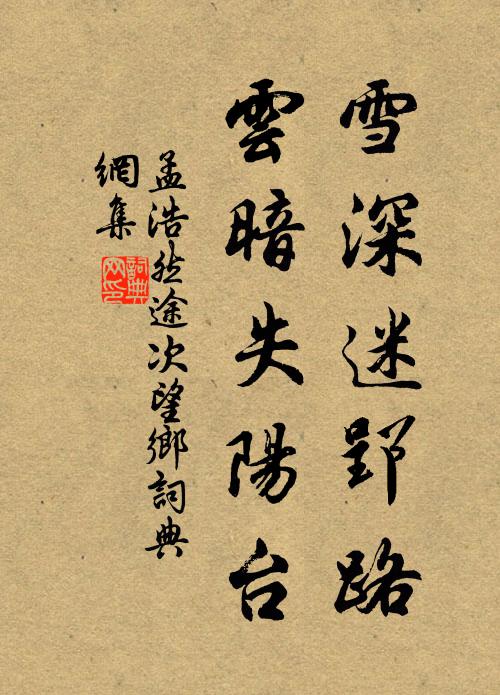 雪深迷郢路
雲暗失陽台
孟浩然途次望鄉詞典
網集
詞典
网印